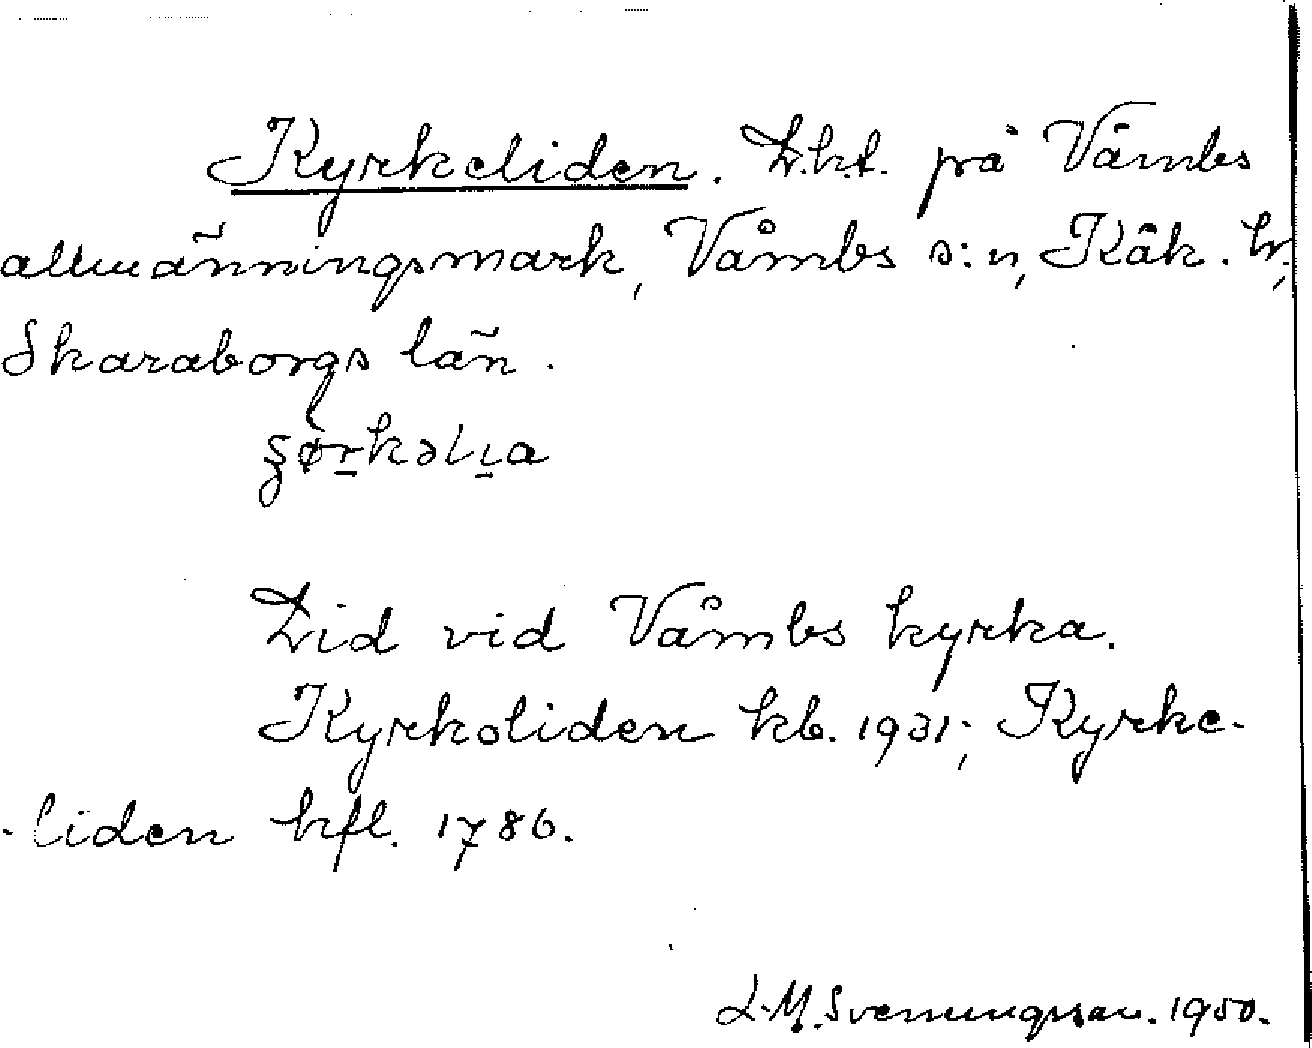 Kyrkeliden. L.h.t. på Våmbs
allmänningsmark, Våmbs s:n, Kåk. hr,
Skaraborgs län.
Lid vid Våmbs kyrka.
Kyrkoliden kb. 1931; Kyrke-
-liden kfl. 1786.
L.M. Svenungsson. 1950.